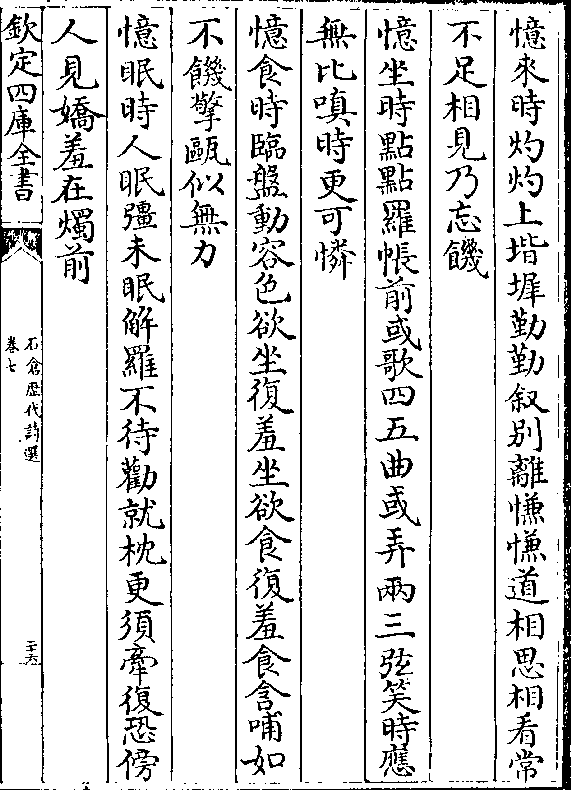 憶來時灼灼上堦墀勤勤叙别離慊慊道相思相看常
不足相見乃忘饑
憶坐時點點羅帳前或歌四五曲或弄兩三弦笑時應
無比嗔時更可憐
憶食時臨盤動容色欲坐復羞坐欲食復羞食含哺如
不饑擎甌似無力
憶眠時人眠彊未眠解羅不待勸就枕更須牽復恐傍
人見嬌羞在燭前
欽定四庫全書
石倉歴代詩選
卷七
二十六